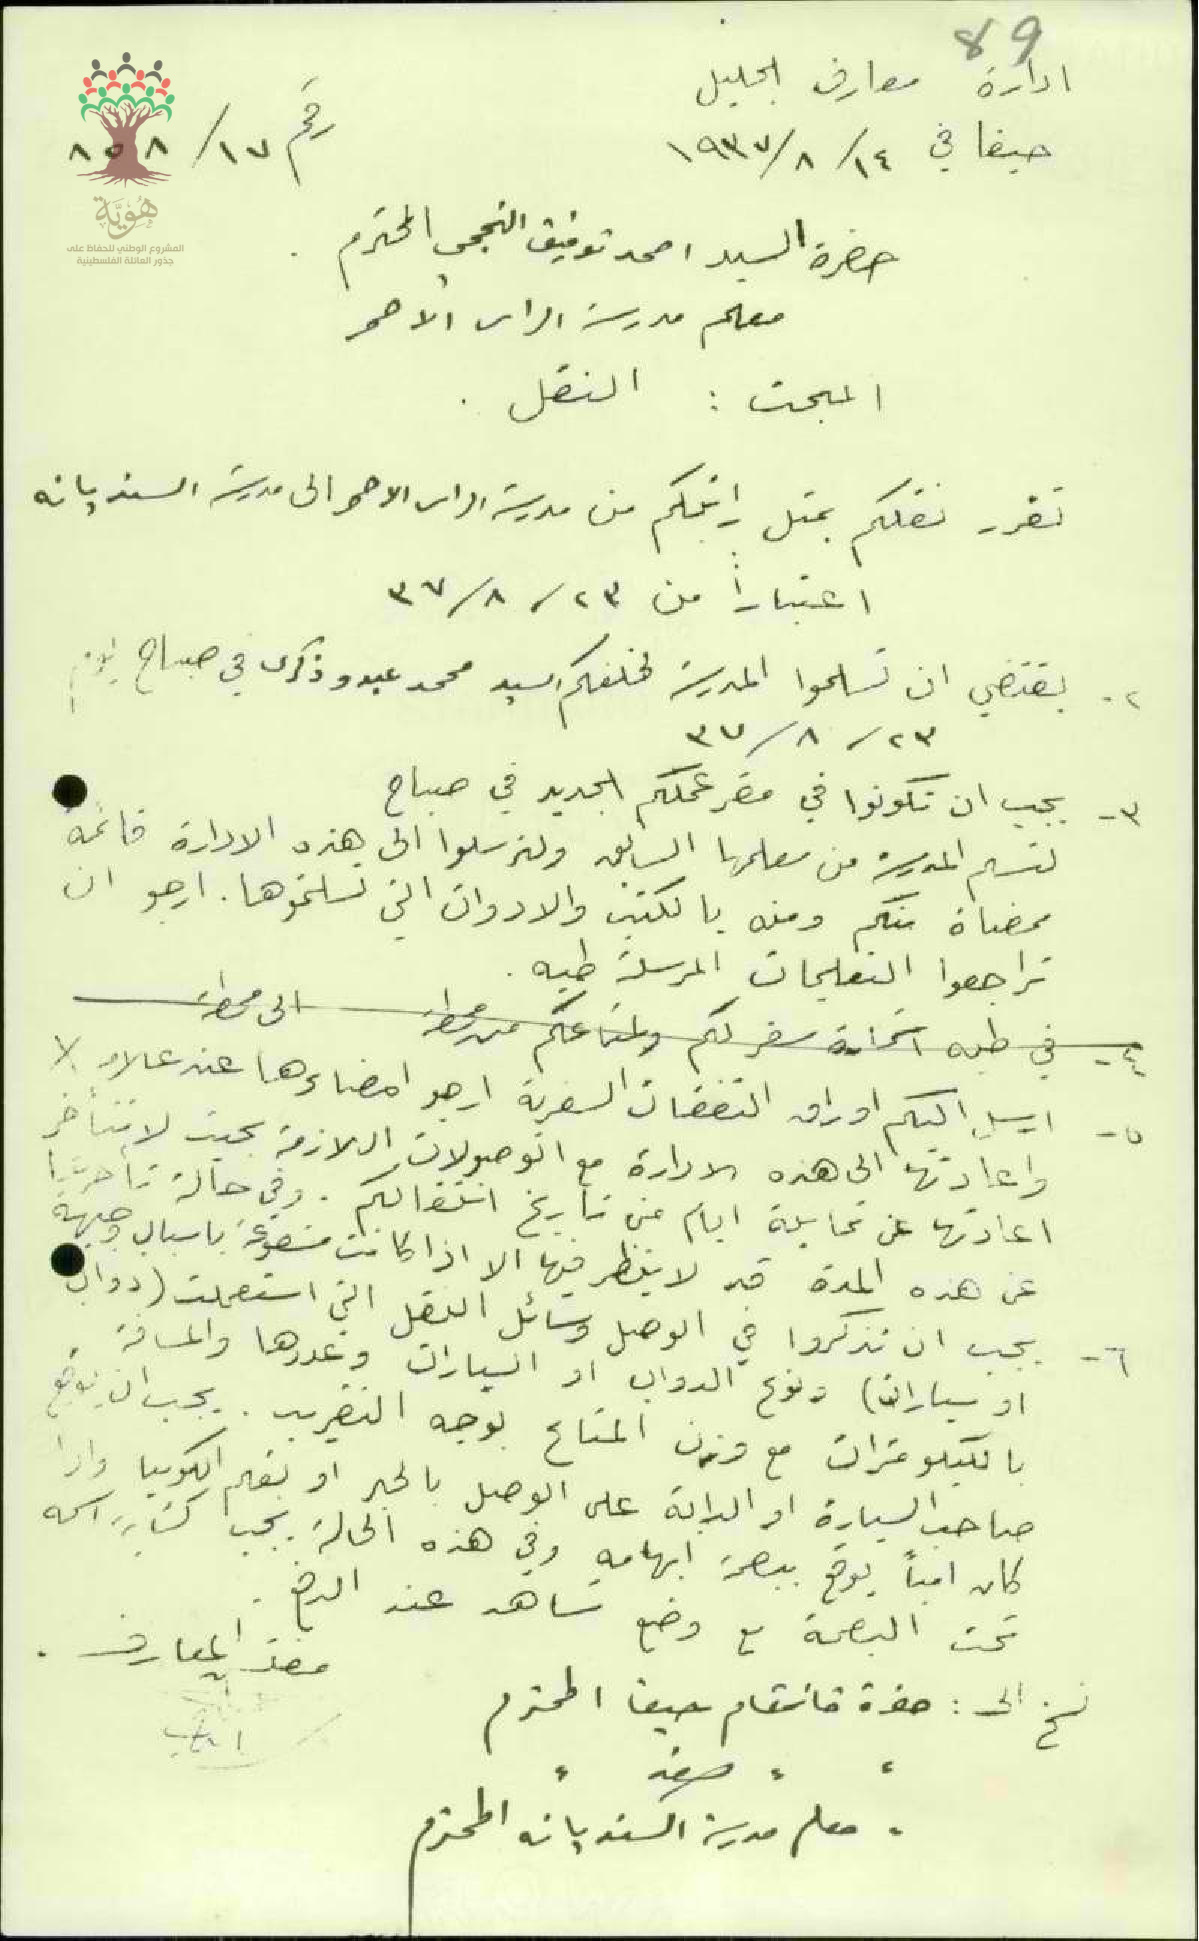 89
ادارة معارف الجليل
حيفا في ١٤/٨/١٩٣٧
رقم ١٧/٨٥٨
هُوِيَّة
المشروع الوطني للحفاظ على
جذور العائلة الفلسطينية
حضرة السيد احمد توفيق النجمي المحترم .
معلم مدرسة الراس الاحمر
المبحث : النقل .
تقرر نقلكم بمثل راتبكم من مدرسة الراس الاحمر الى مدرسة السنديانه
اعتباراً من ٢٣/٨/٣٧
٢- يقتضي ان تسلموا المدرسة لخلفكم السيد محمد عبدو ذكرى في صباح يوم
٢٣/٨/٣٧
٣- يجب ان تكونوا في مقر عملكم الجديد في صباح
لتسلم المدرسة من معلمها السابق ولترسلوا الى هذه الادارة قائمة
ممضاة منكم ومنه بالكتب والادوات التي تسلمتموها . ارجو ان
تراجعوا التعليمات المرسلة طيه .
٤- في طيه استمارة سفر لكم ولمتاعكم من محطة الى محطة
٥- ارسل اليكم اوراق النفقات السفرية ارجو امضاءها عند علامة x
واعادتها الى هذه الادارة مع الوصولات اللازمة بحيث لا يتأخر
اعادتها عن ثمانية ايام من تاريخ انتقالكم . وفي حالة تأخرها
عن هذه المدة قد لا ينظر فيها الا اذا كانت مشفوعة باسباب وجيهة
٦- يجب ان تذكروا في الوصل وسائل النقل التي استعملت (دواب
او سيارات) ونوع الدواب او السيارات وعددها والمسافة
بالكيلومترات مع وزن المتاع بوجه التقريب . يجب ان يوقع
صاحب السيارة او الدابة على الوصل بالحبر او بقلم الكوبيا واذا
كان امياً يوقع ببصمة ابهامه وفي هذه الحالة يجب كتابة اسمه
تحت البصمة مع وضع شاهد عند الدفع .
مفتش المعارف .
نسخ الى : حضرة قائمقام حيفا المحترم
" " صفد "
" معلم مدرسة السنديانه المحترم